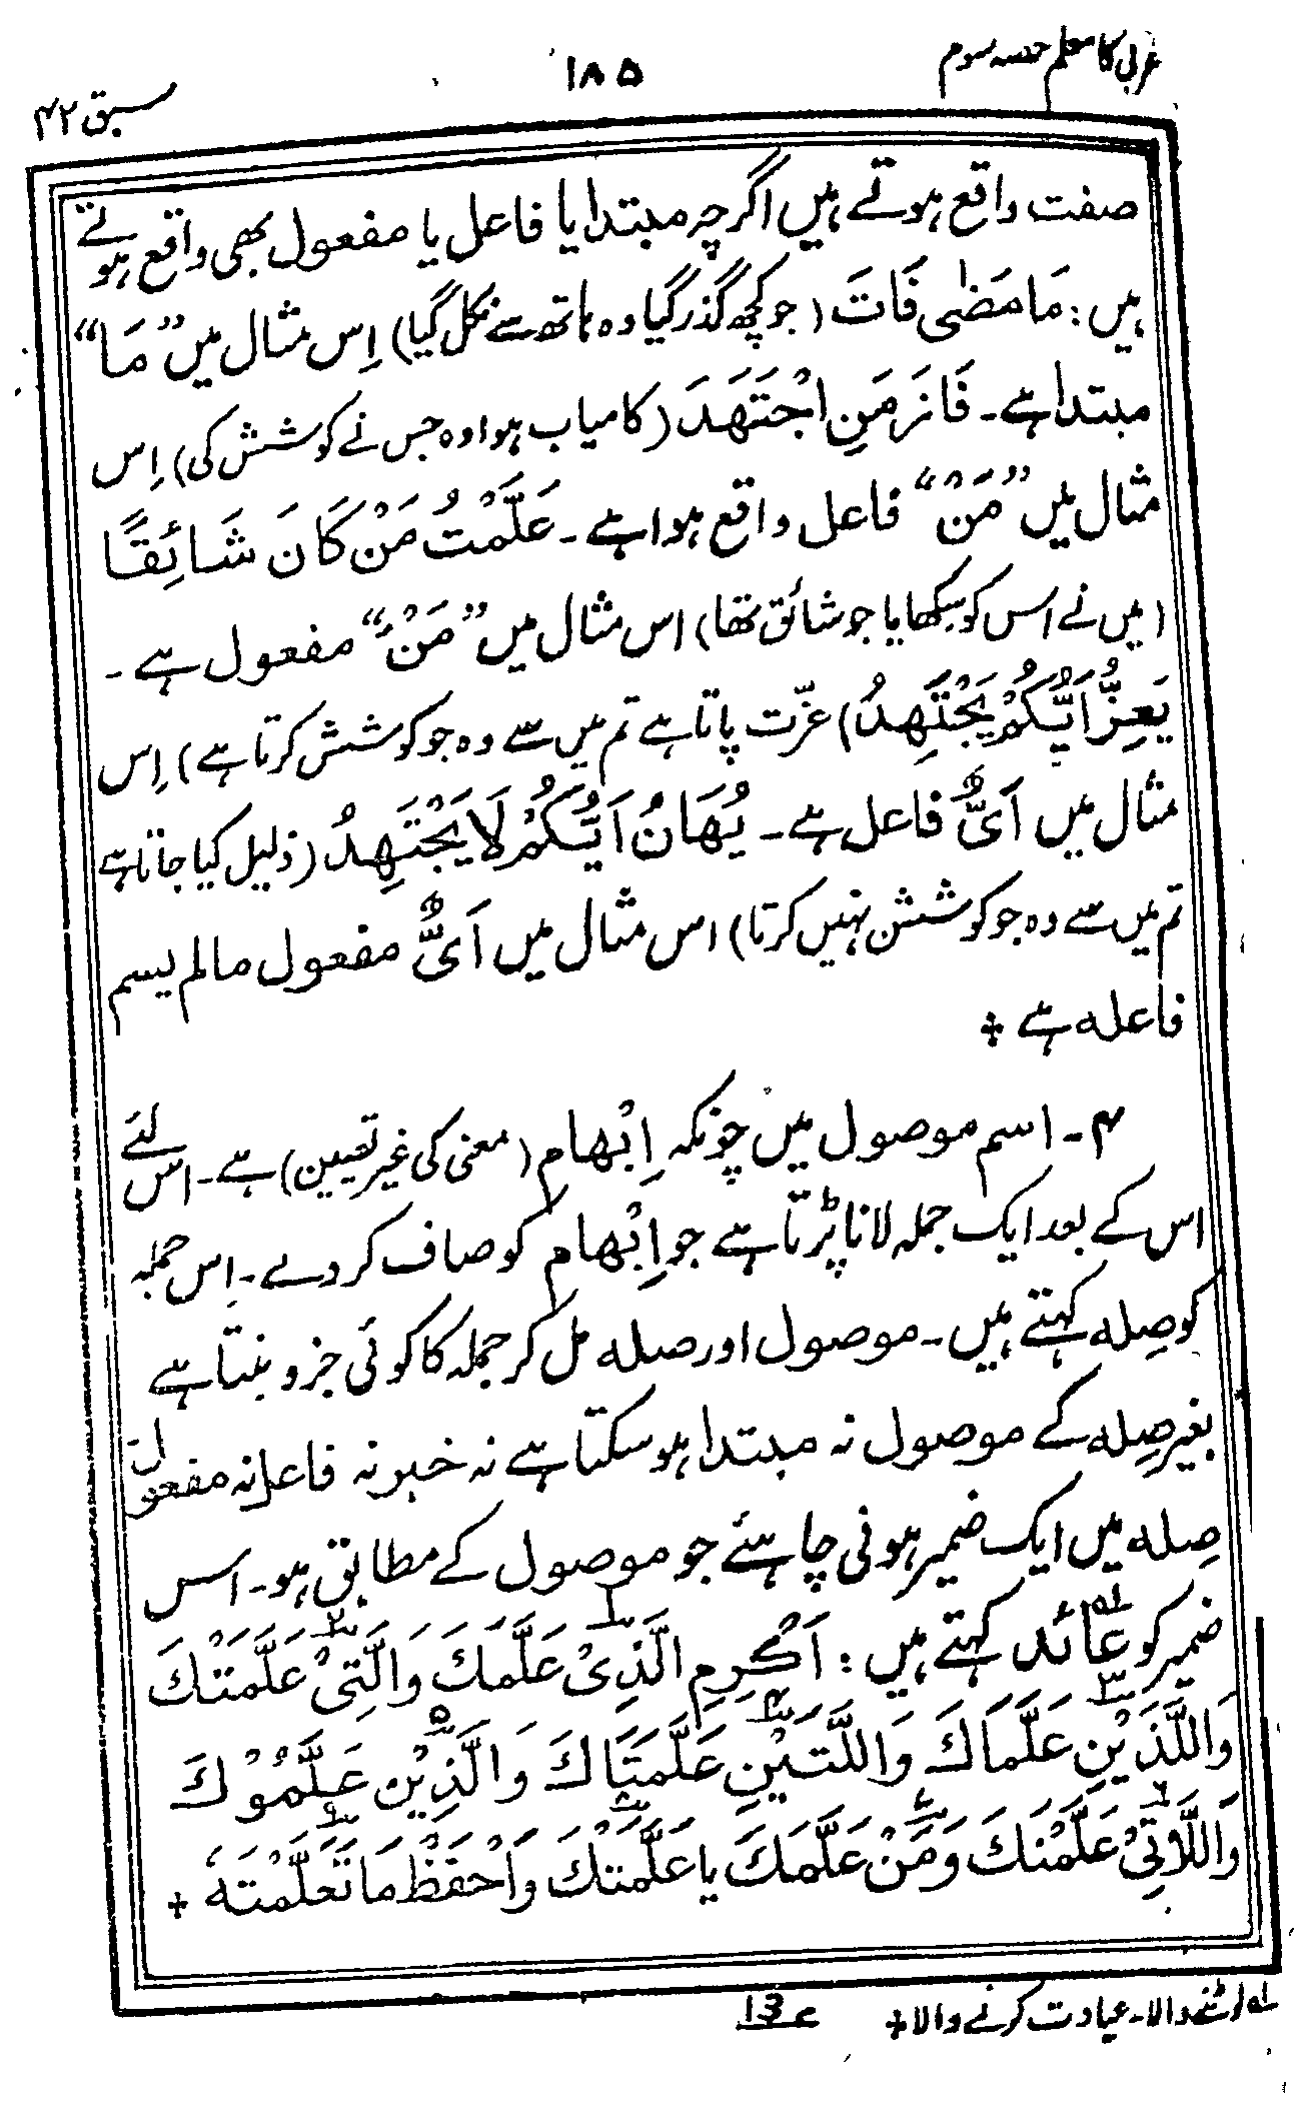 عربی کا معلم حصہ سوم
۱۸۵
سبق ۴۲
صفت واقع ہوتے ہیں اگرچہ مبتدا یا فاعل یا مفعول بھی واقع ہوتے
ہیں: مَا مَضٰی فَاتَ (جو کچھ گذر گیا وہ ہاتھ سے نکل گیا) اِس مثال میں ”مَا“
مبتدا ہے۔ فَازَ مَنِ اجْتَهَدَ (کامیاب ہوا وہ جس نے کوشش کی) اِس
مثال میں ”مَنْ“ فاعل واقع ہوا ہے۔ عَلَّمْتُ مَنْ كَانَ شَائِقًا
(میں نے اس کو سکھایا جو شائق تھا) اس مثال میں ”مَنْ“ مفعول ہے۔
يَعِزُّ اَيُّكُمْ يَجْتَهِدُ (عزّت پاتا ہے تم میں سے وہ جو کوشش کرتا ہے) اِس
مثال میں اَیُّ فاعل ہے۔ يُهَانُ اَيُّكُمْ لَا يَجْتَهِدُ (ذلیل کیا جاتا ہے
تم میں سے وہ جو کوشش نہیں کرتا) اس مثال میں اَیُّ مفعول مالم یسم
فاعلہ ہے +
۴۔ اسم موصول میں چونکہ اِبْهام (معنی کی غیر تعیین) ہے۔ اس لئے
اس کے بعد ایک جملہ لانا پڑتا ہے جو اِبْهام کو صاف کر دے۔ اِس جملہ
کو صِلہ کہتے ہیں۔ موصول اور صلہ مل کر جملہ کا کوئی جزو بنتا ہے
بغیر صِلہ کے موصول نہ مبتدا ہو سکتا ہے نہ خبر نہ فاعل نہ مفعول
صِلہ میں ایک ضمیر ہونی چاہئے جو موصول کے مطابق ہو۔ اس
ضمیر کو عَائد کہتے ہیں: اَكْرِمِ الَّذِیْ عَلَّمَكَ وَالَّتِیْ عَلَّمَتْكَ
وَاللَّذَيْنِ عَلَّمَاكَ وَاللَّتَيْنِ عَلَّمَتَاكَ وَالَّذِيْنَ عَلَّمُوْكَ
وَاللَّاتِیْ عَلَّمْنَكَ وَمَنْ عَلَّمَكَ یا عَلَّمَتْكَ وَاحْفَظْ مَا تَعَلَّمْتَهٗ +
لہ لوٹنے والا۔ عیادت کرنے والا +
13